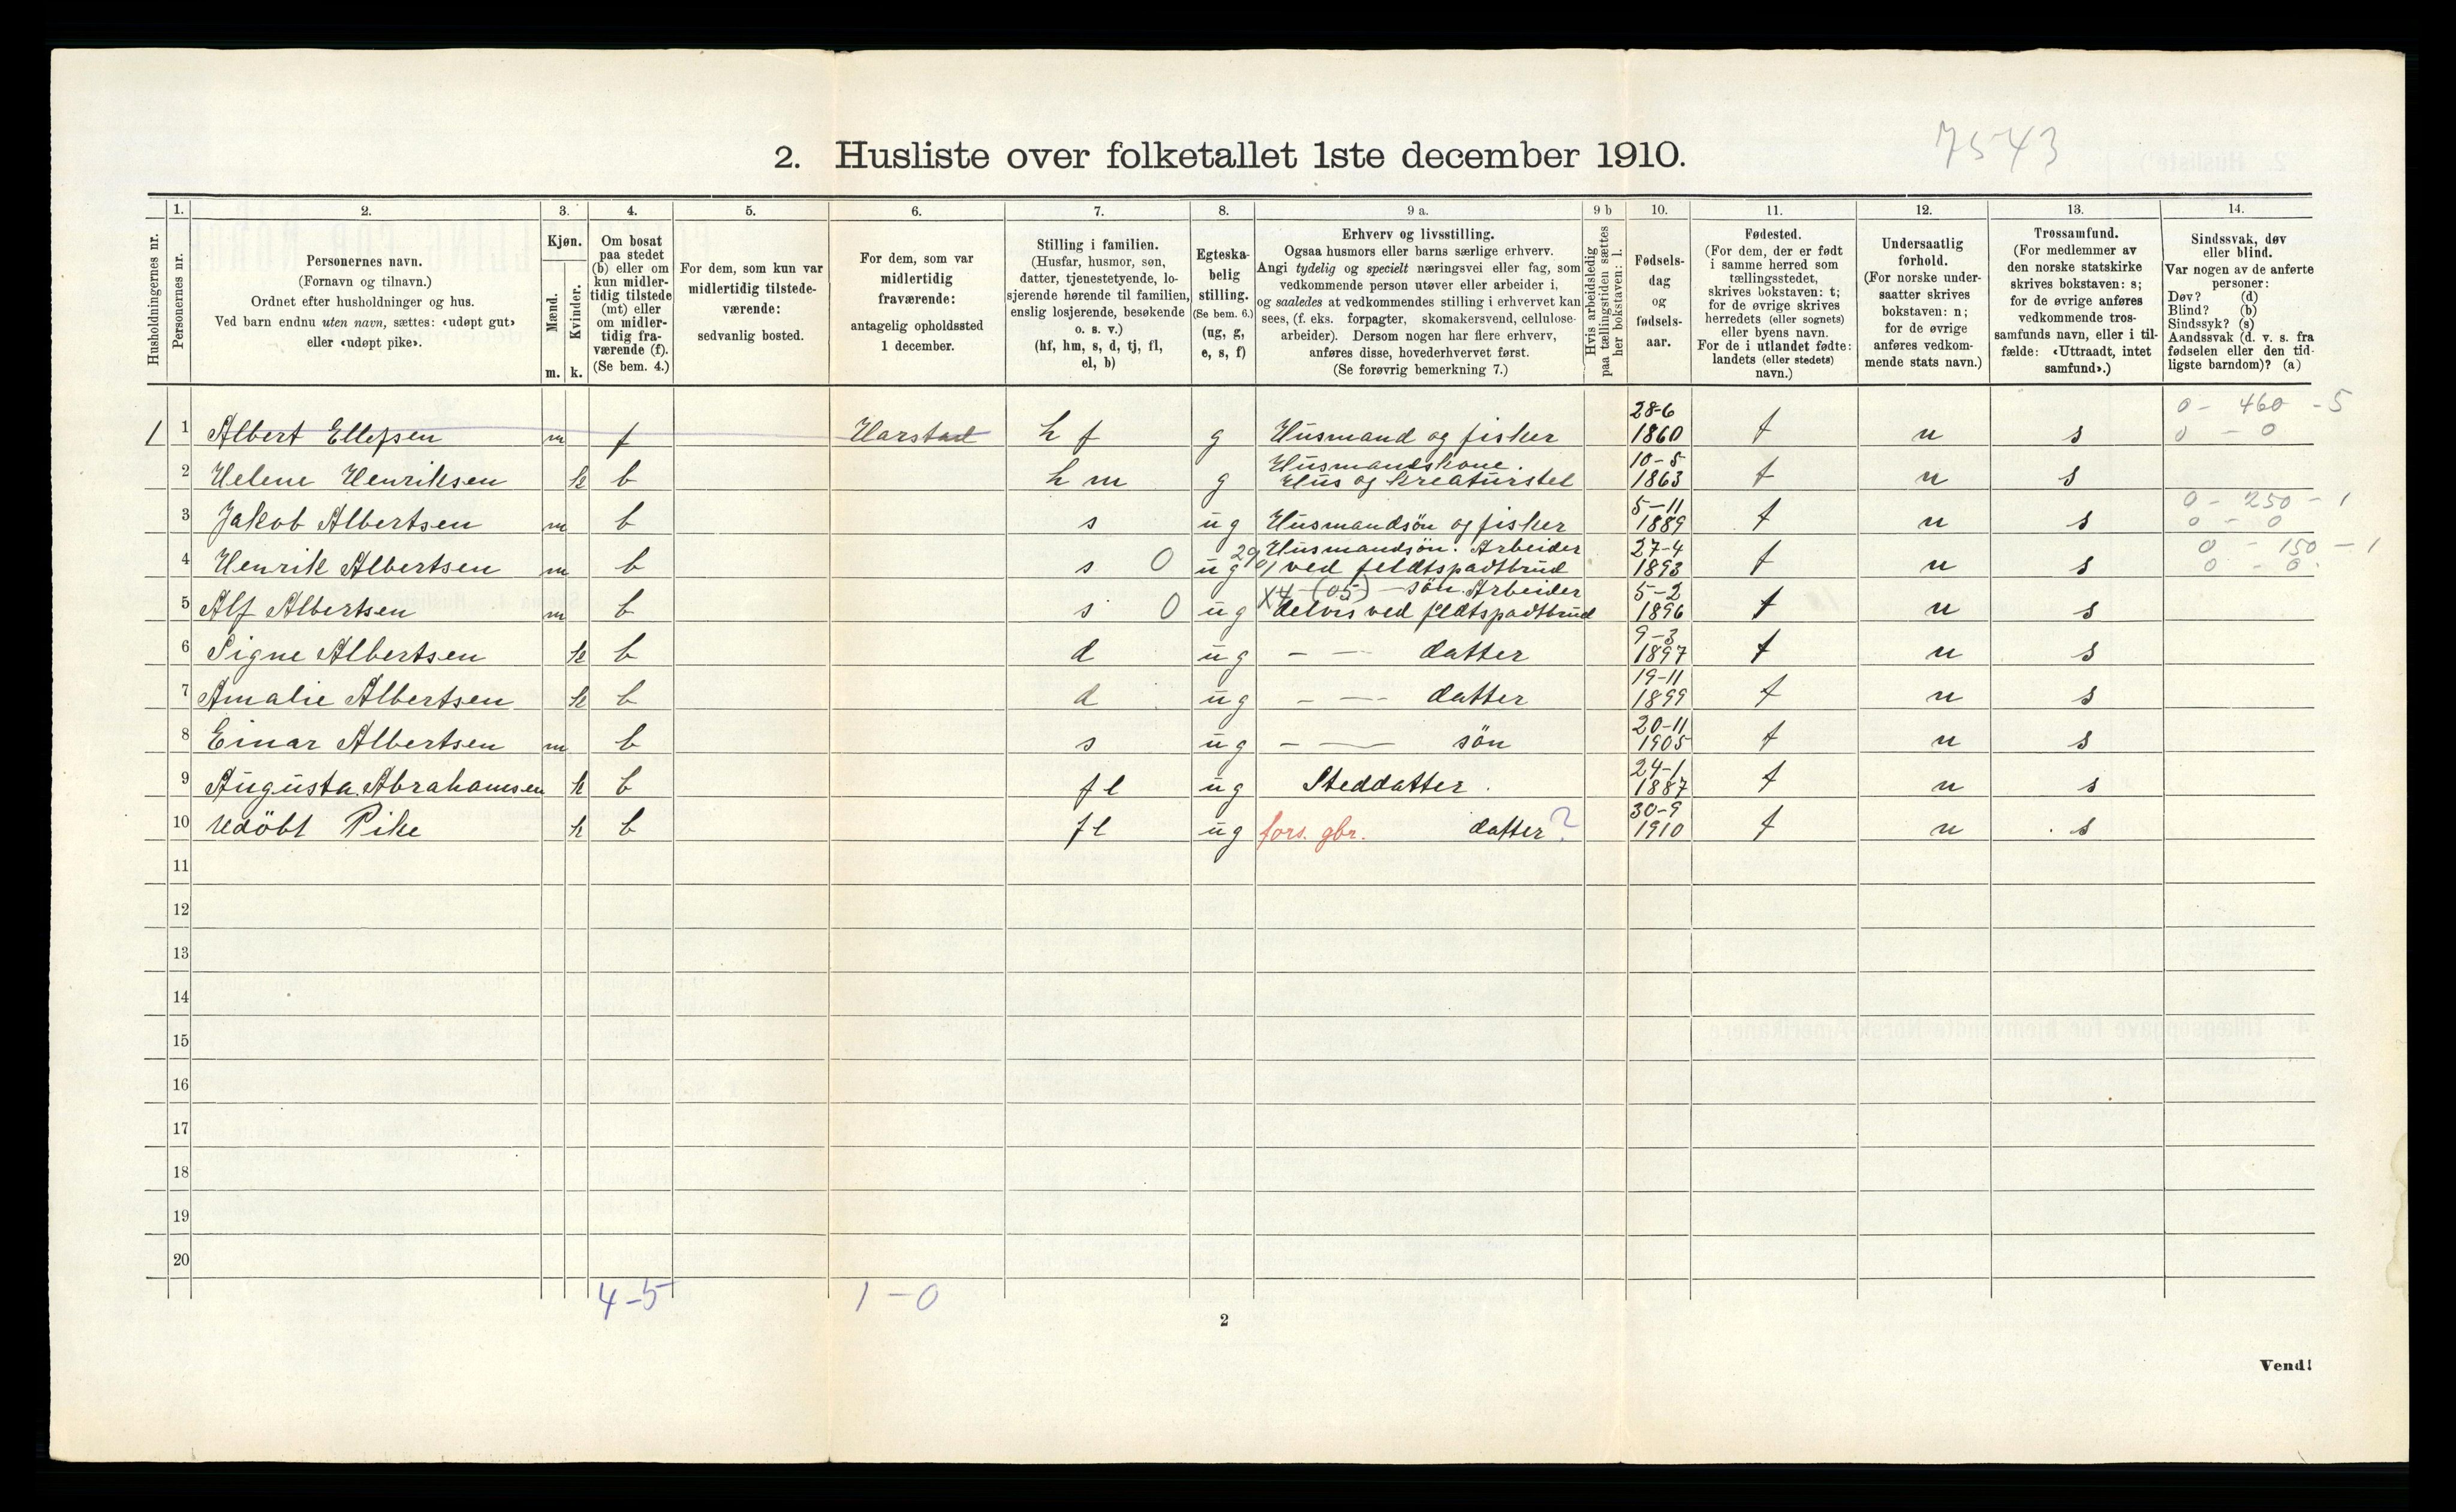 7543
2. Husliste over folketallet 1ste december 1910.
Husholdningernes nr.
1.
Personernes nr.
2.
Personernes navn.
(Fornavn og tilnavn.)
Ordnet efter husholdninger og hus.
Ved barn endnu uten navn, sættes: «udøpt gut»
eller «udøpt pike».
3.
Kjøn.
Mænd.
Kvinder.
m. k.
4.
Om bosat
paa stedet
(b) eller om
kun midler-
tidig tilstede
(mt) eller
om midler-
tidig fra-
værende (f).
(Se bem. 4.)
5.
For dem, som kun var
midlertidig tilstede-
værende:
sedvanlig bosted.
6.
For dem, som var
midlertidig
fraværende:
antagelig opholdssted
1 december.
7.
Stilling i familien.
(Husfar, husmor, søn,
datter, tjenestetyende, lo-
sjerende hørende til familien,
enslig losjerende, besøkende
o. s. v.)
(hf, hm, s, d, tj, fl,
el, b)
8.
Egteska-
belig
stilling.
(Se bem. 6.)
(ug, g,
e, s, f)
9 a.
Erhverv og livsstilling.
Ogsaa husmors eller barns særlige erhverv.
Angi tydelig og specielt næringsvei eller fag, som
vedkommende person utøver eller arbeider i,
og saaledes at vedkommendes stilling i erhvervet kan
sees, (f. eks. forpagter, skomakersvend, cellulose-
arbeider). Dersom nogen har flere erhverv,
anføres disse, hovederhvervet først.
(Se forøvrig bemerkning 7.)
9 b
Hvis arbeidsledig
paa tællingstiden sættes
her bokstaven: l.
10.
Fødsels-
dag
og
fødsels-
aar.
11.
Fødested.
(For dem, der er født
i samme herred som
tællingsstedet,
skrives bokstaven: t;
for de øvrige skrives
herredets (eller sognets)
eller byens navn.
For de i utlandet fødte:
landets (eller stedets)
navn.)
12.
Undersaatlig
forhold.
(For norske under-
saatter skrives
bokstaven: n;
for de øvrige
anføres vedkom-
mende stats navn.)
13.
Trossamfund.
(For medlemmer av
den norske statskirke
skrives bokstaven: s;
for de øvrige anføres
vedkommende tros-
samfunds navn, eller i til-
fælde: «Uttraadt, intet
samfund».)
14.
Sindssvak, døv
eller blind.
Var nogen av de anførte
personer:
Døv? (d)
Blind? (b)
Sindssyk? (s)
Aandssvak (d. v. s. fra
fødselen eller den tid-
ligste barndom)? (a)
28-6 0 - 460 - 5
1 1 Albert Ellefsen m f Harstad h f g Husmand og fisker 1860 t n s 0 - 0
Husmandskone. 10-5
2 Helene Henriksen k b h m g Hus og Kreaturstel 1863 t n s
5-11 0 - 250 - 1
3 Jakob Albertsen m b s ug Husmandsön og fisker 1889 t n s 0 - 0
Husmandsön. Arbeider 27-4 0 - 150 - 1
4 Henrik Albertsen m b s 0 ug ved feldtspadtbrud 1893 t n s 0 - 0
X4 (05) - sön. Arbeider 5-2
5 Alf Albertsen m b s 0 ug delvis ved feldtspadtbrud 1896 t n s
9-3
6 Signe Albertsen k b d ug - - datter 1897 t n s
19-11
7 Amalie Albertsen k b d ug - - datter 1899 t n s
20-11
8 Einar Albertsen m b s ug - - sön 1905 t n s
24-1
9 Augusta Abrahamsen k b fl ug Steddatter. 1887 t n s
30-9
10 Udöbt Pike k b fl ug fors. gbr. datter? 1910 t n s
11
12
13
14
15
16
17
18
19
20
4-5 1-0
2
Vend!